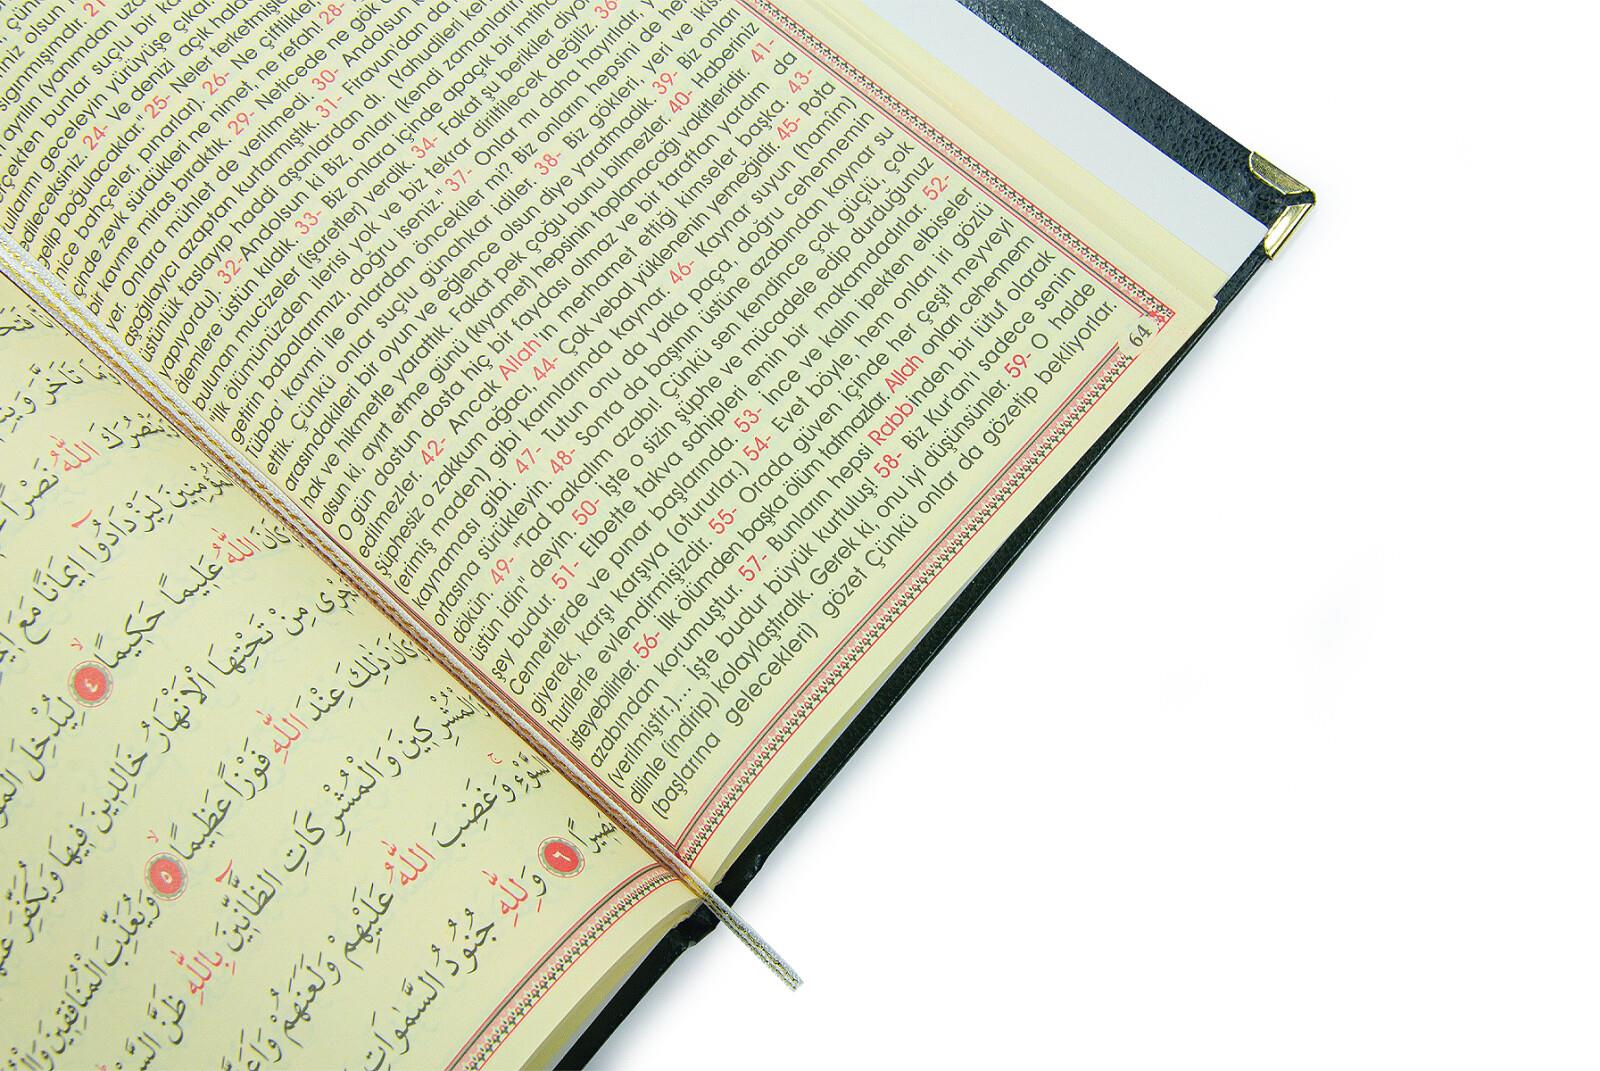 niz olsun
sığınmışımdır. 21
ayrılın (yanımdan uza
bunlar suçlu bir ka
geceleyin yürüyüşe çıkar
gileceksiniz. 24- Ve denizi açık
gelip boğulacaklar." 25- Neler terketmiş
nice bahçeler, pınarlar). 26- Ne çiftlikler,
içinde zevk sürdükleri ne nimet, ne refah! 28-
bir kavme miras bıraktık. 29- Neticede ne gök
yer. Onlara mühlet de verilmedi. 30- Andolsun
aşağılayıcı azaptan kurtarmıştık. 31- Firavun'dan da
üstünlük taslayıp haddi aşanlardan dı. (Yahudileri
yapıyordu). 32- Andolsun ki Biz, onları (kendi
alemlere üstün kıldık. 33- Biz onlara içinde apaçık bir
bulunan mucizeler (işaretler) verdik. 34- Fakat şu berikiler
ilk ölümünüzden ilerisi yok ve biz tekrar diriltilecek değiliz. 36
getirin babalarımızı, doğru iseniz. 37- Onlar mı daha hayırlıdır,
Tübba kavmi ile onlardan öncekiler mi? Biz onların hepsini de
ettik. Çünkü onlar suçlu günahkar idiler. 38- Biz gökleri, yeri ve
arasındakileri bir oyun ve eğlence olsun diye yaratmadık. 39- Biz onları
hak ve hikmetle yarattık. Fakat pek çoğu bunu bilmezler. 40- Haberiniz
olsun ki, ayırt etme günü (kıyamet) hepsinin toplanacağı vakitleridir. 41-
O gün dostun dosta hiç bir faydası olmaz ve bir taraftan yardım da
edilmezler. 42- Ancak Allah'ın merhamet ettiği kimseler başka. 43-
şüphesiz o zakkum ağacı, 44- Çok vebal yüklenenin yemeğidir. 45- Pota
(erimiş maden) gibi karınlarında kaynar. 46- Kaynar suyun (hamim)
kaynaması gibi. 47- Tutun onu da yaka paça, doğru cehennemin
ortasına sürükleyin. 48- Sonra da başının üstüne azabından kaynar su
dökün. 49- "Tad bakalım azabı! Çünkü sen kendince çok güçlü, çok
üstün idin" deyin. 50- İşte o sizin şüphe ve mücadele edip durduğunuz
şey budur. 51- Elbette takva sahipleri emin bir makamdadırlar. 52-
Cennetlerde ve pınar başlarında. 53- İnce ve kalın ipekten elbiseler
giyerek, karşı karşıya (otururlar.) 54- Evet böyle, hem onları iri gözlü
hurilerle evlendirmişizdir. 55- Orada güven içinde her çeşit meyveyi
isteyebilirler. 56- İlk ölümden başka ölüm tatmazlar. Allah onları cehennem
azabından korumuştur. 57- Bunların hepsi Rabbinden bir lütuf olarak
(verilmiştir.)... İşte budur büyük kurtuluş! 58- Biz Kur'an'ı sadece senin
dilinle (indirip) kolaylaştırdık. Gerek ki, onu iyi düşünsünler. 59- O halde
(başlarına gelecekleri) gözet Çünkü onlar da gözetip bekliyorlar.
64
تَاَخَّرَ
اللّٰهُ نَصْرًا
لِيَزْدَادُٓوا اِيمَانًا مَعَ
اللّٰهُ عَلِيمًا حَكِيمًا ٤ لِيُدْخِلَ
مِنْ تَحْتِهَا الْاَنْهَارُ خَالِدِينَ فِيهَا وَيُكَفِّرَ
ذٰلِكَ عِنْدَ اللّٰهِ فَوْزًا عَظِيمًا ٥ وَيُعَذِّبَ الْمُنَافِقِينَ
وَالْمُشْرِكَاتِ الظَّٓانِّينَ بِاللّٰهِ ظَنَّ
وَغَضِبَ اللّٰهُ عَلَيْهِمْ وَلَعَنَهُمْ
٦ وَلِلّٰهِ جُنُودُ السَّمٰوَاتِ